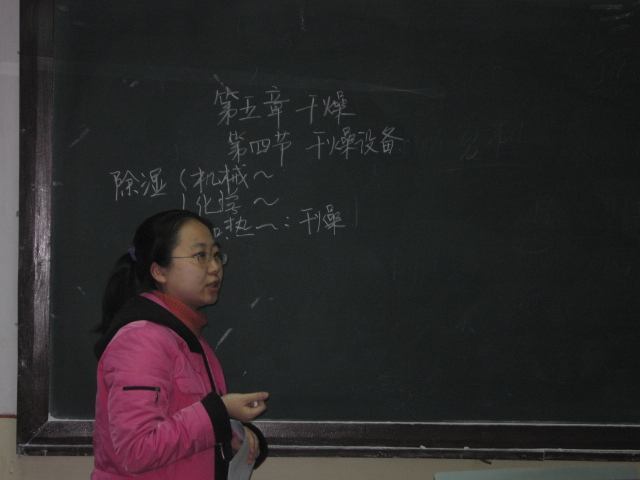 第五章 干燥
第四节 干燥设备
除湿 机械~
化学 ~
热~:干燥